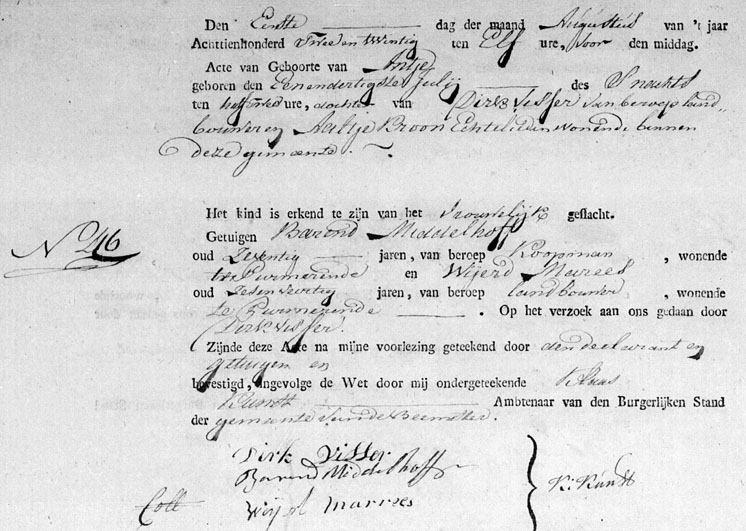 Den Eerste dag der maand Augustus van 't jaar
Achttienhonderd Twee en Twintig ten Elf ure, voor den middag.
Acte van Geboorte van Antje
geboren den Eenendertigsten Julij des Snachts
ten half ure, dochter van Dirk Visser van beroep land
bouwer en Aaltje Kroon Echtelieden wonende binnen
deze gemeente.
Het kind is erkend te zijn van het Vrouwelijk geslacht.
Getuigen Barend Middelhoff
No. 46
oud Zeventig jaren, van beroep Koopman, wonende
te Purmerende en Wijerd Marees
oud Zesenveertig jaren, van beroep landbouwer, wonende
te Purmerende. Op het verzoek aan ons gedaan door
Dirk Visser.
Zijnde deze Acte na mijne voorlezing geteekend door den declarant en
getuigen en
bevestigd, ingevolge de Wet door mij ondergeteekende Klaas
Kunst Ambtenaar van den Burgerlijken Stand
der gemeente van de Beemster.
Dirk Visser
Barend Middelhoff
K: Kunst
Coll
marrees